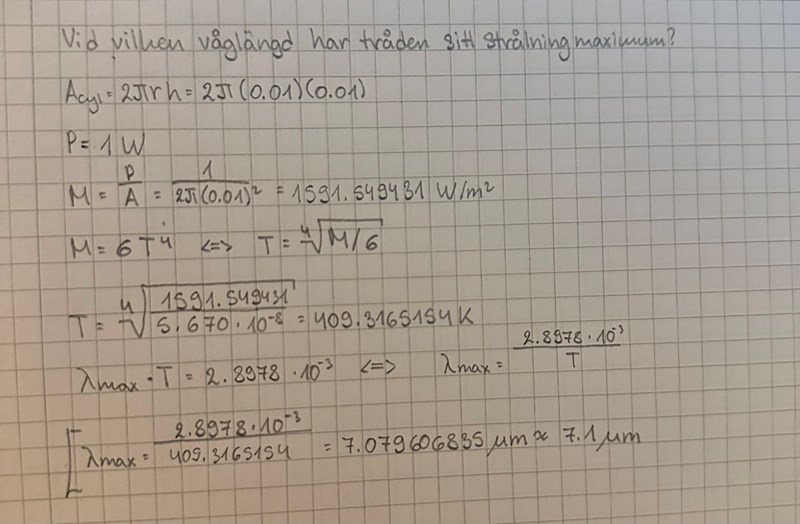 Vid vilken våglängd har tråden sitt strålningmaximum?
Acyl = 2πrh = 2π(0.01)(0.01)
P = 1 W
M = P/A = 1/2π(0.01)² = 1591.549431 W/m²
M = σT⁴ <=> T = ∜M/σ
T = ∜1591.549431/5.670·10⁻⁸ = 409.3165154 K
λmax · T = 2.8978 · 10⁻³ <=> λmax = 2.8978·10⁻³/T
λmax = 2.8978·10⁻³/409.3165154 = 7.079606835 μm ≈ 7.1 μm